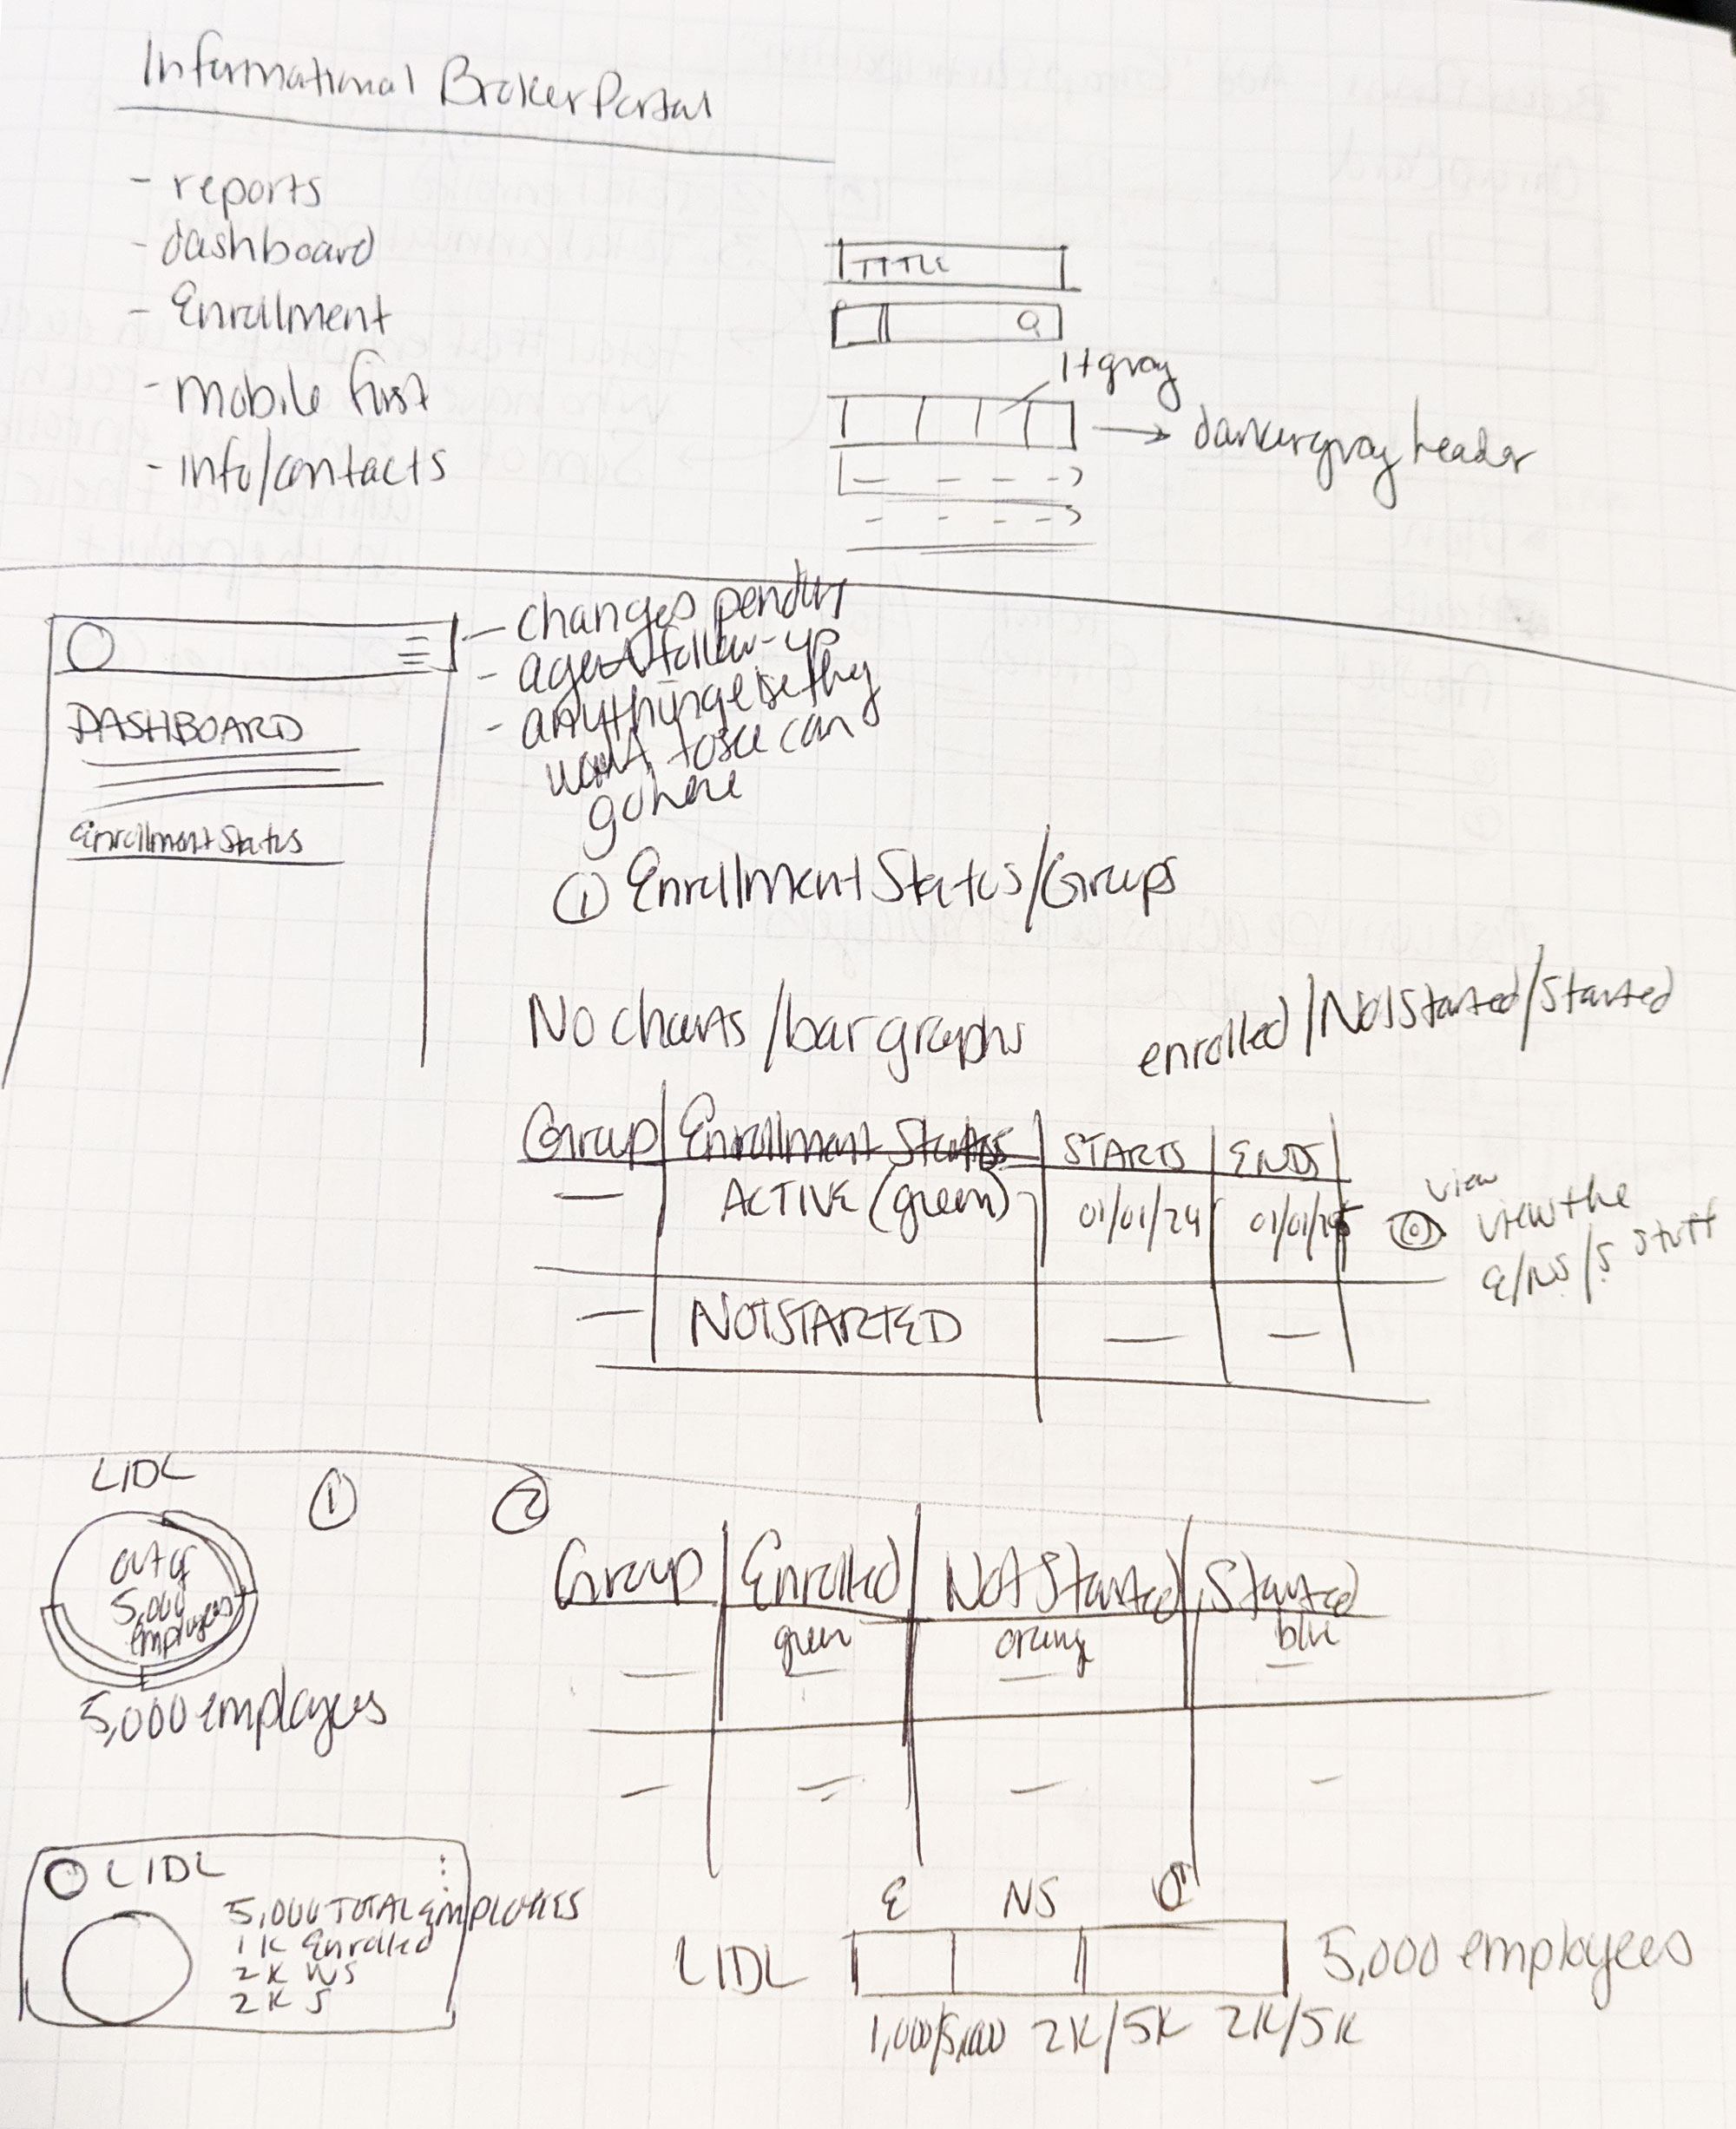 Informational Broker Portal
- reports
- dashboard
- Enrollment
- mobile first
- info/contacts
TITLE
lt gray
darker gray header
- changes pending
- agent follow-up
- anything else they
want to see can
go here
DASHBOARD
Enrollment Status
① Enrollment Status/Groups
No charts/bar graphs
enrolled/Not Started/Started
Group Enrollment Status STARTS ENDS
ACTIVE (green) 01/01/24 01/01/25
view
view the
E/NS/S stuff
NOT STARTED
LIDL
① ②
out of
5,000
employees
5,000 employees
Group Enrolled Not Started Started
green orange blue
LIDL
5,000 TOTAL EMPLOYEES
1K Enrolled
2K NS
2K S
E NS S
LIDL 5,000 employees
1,000/5,000 2K/5K 2K/5K